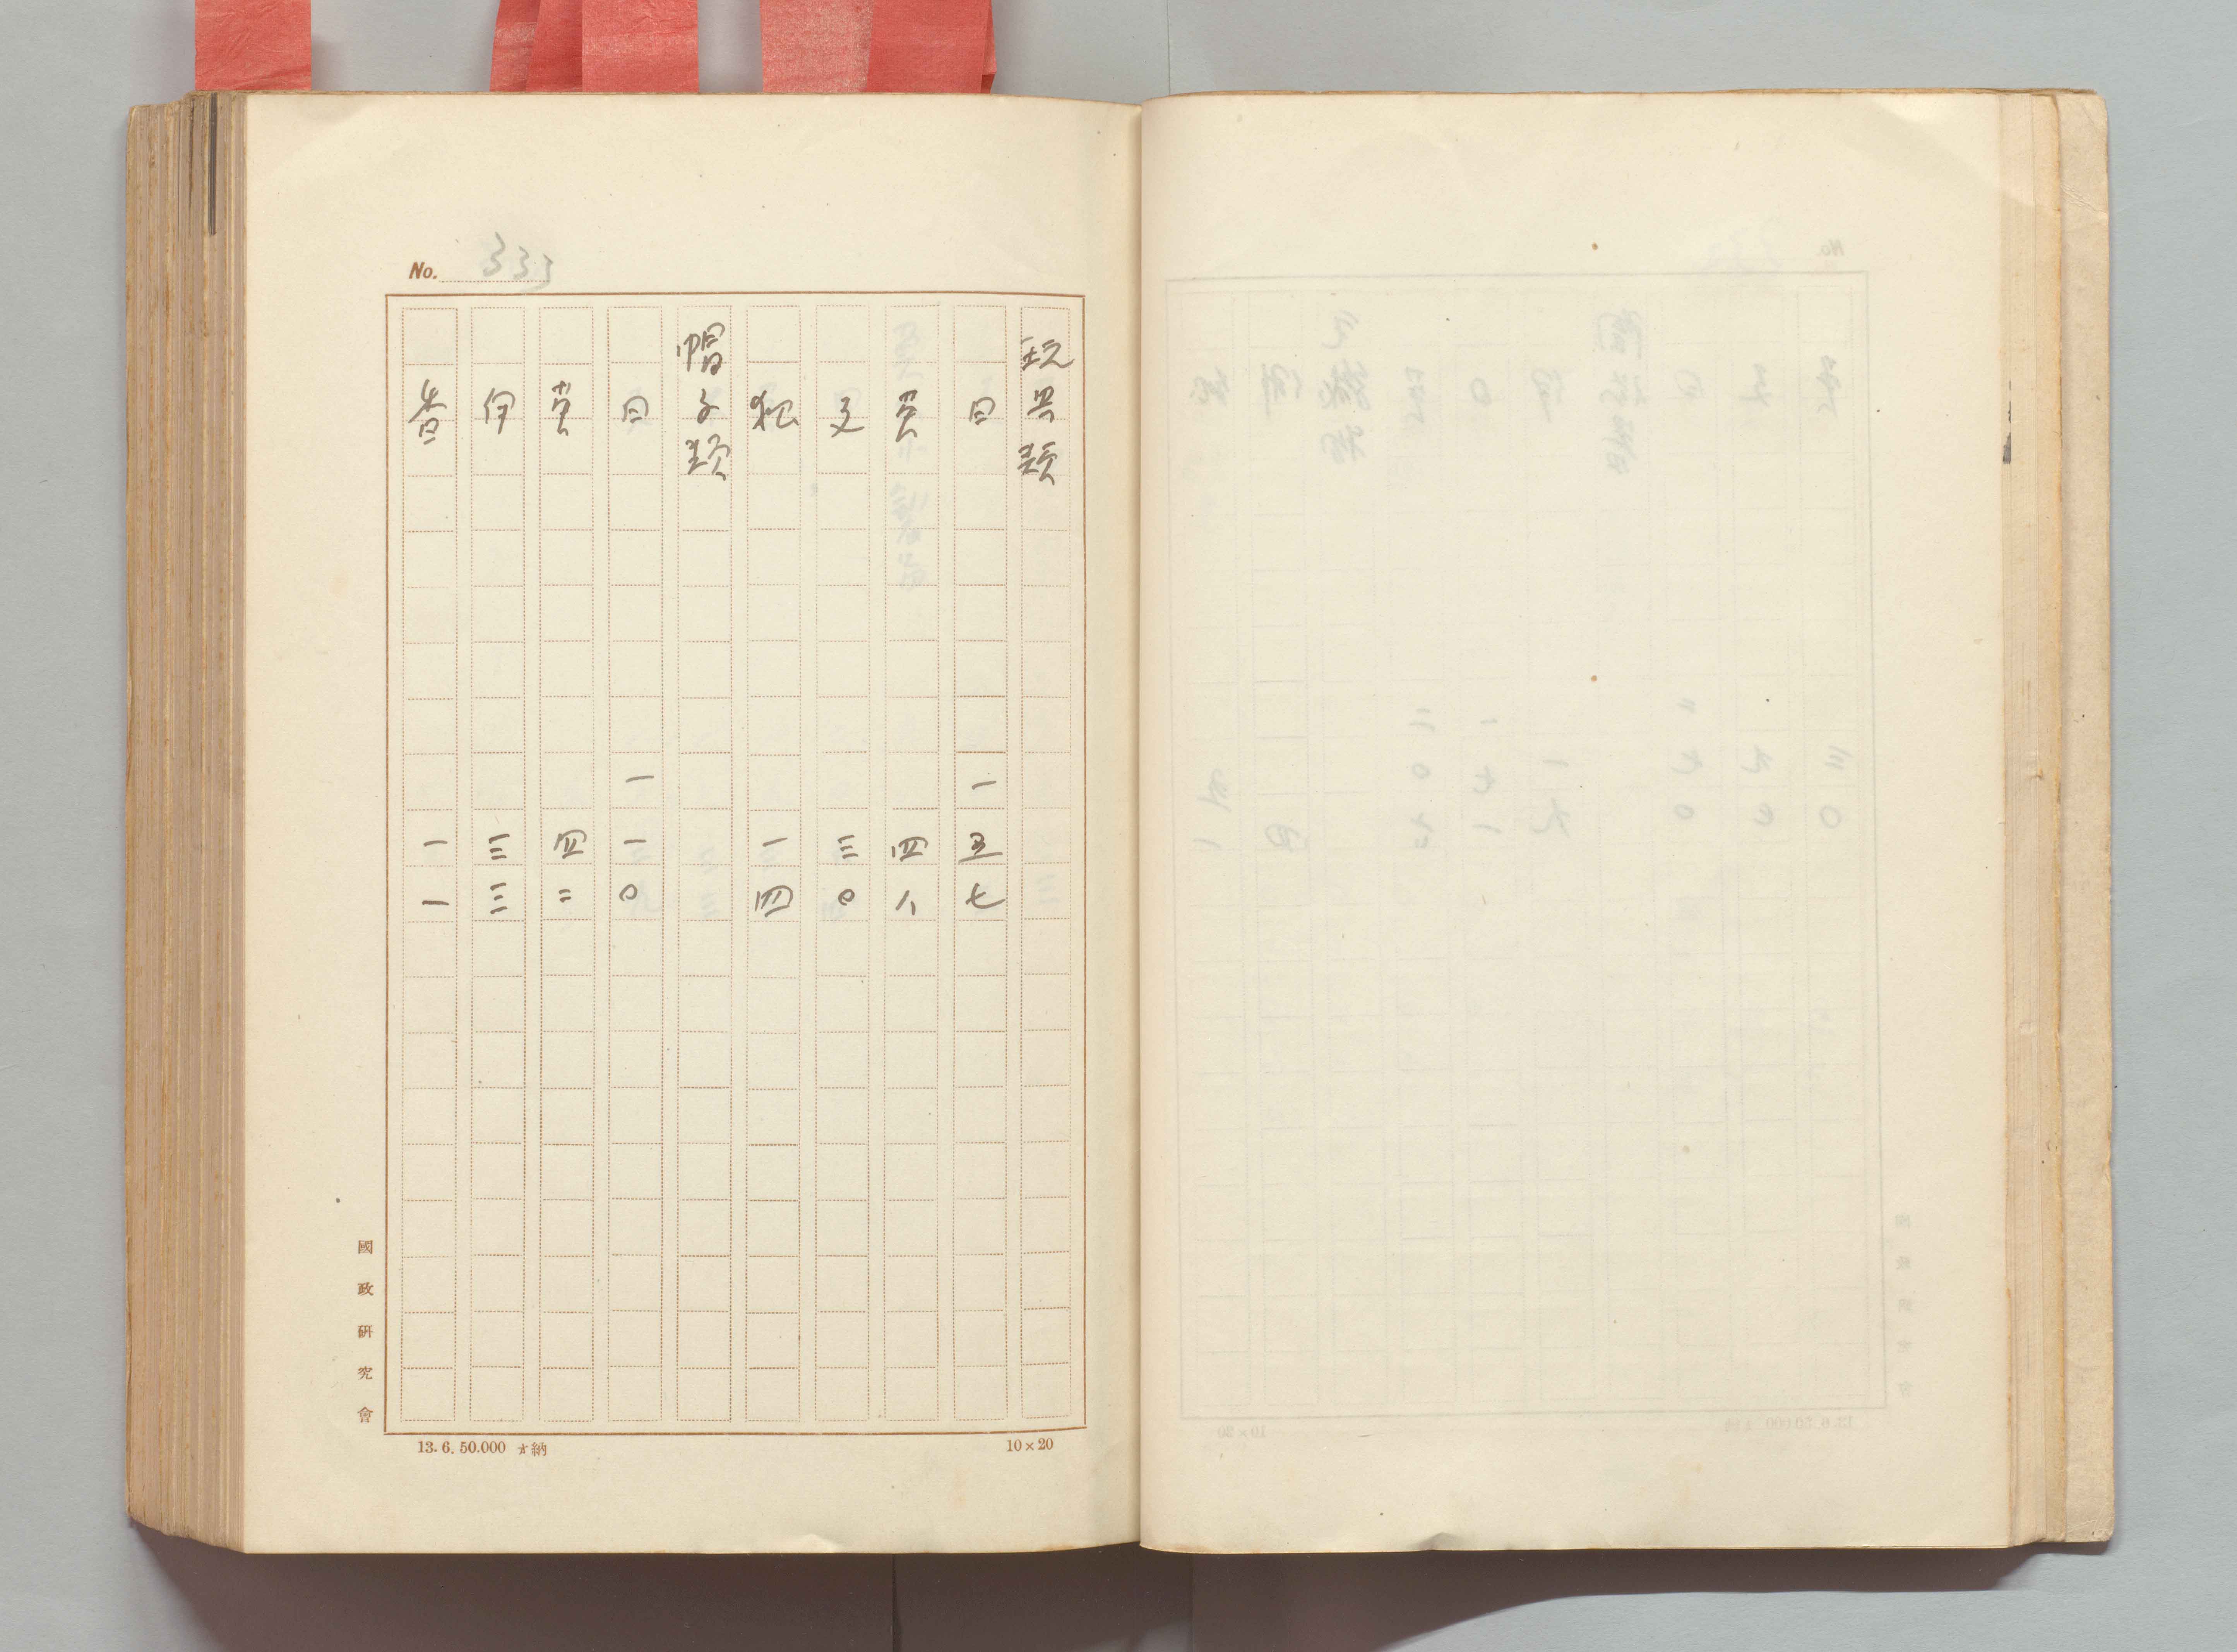 No. 333
玩具類
日 一五七
英 四八
支 三〇
独 一四
帽子類
日 一一〇
英 四二
伊 三三
香 一一
國政研究會
13. 6. 50.000 納
10×20